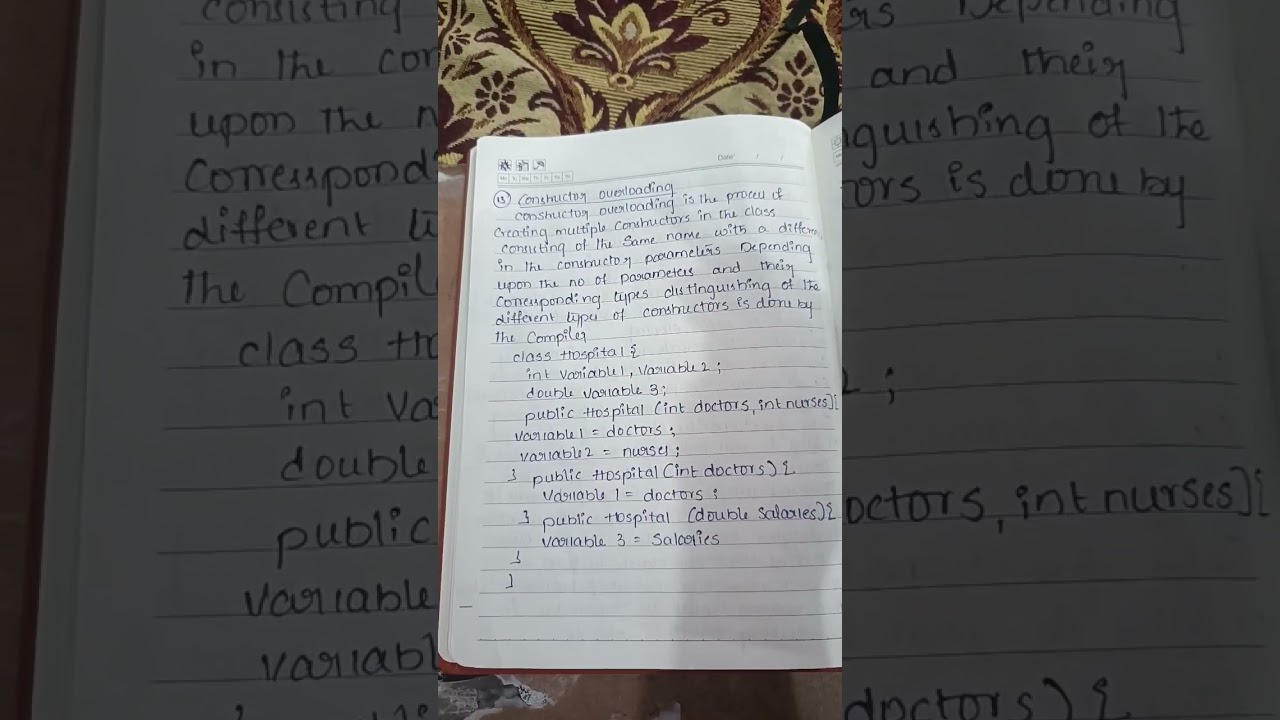 Date: / /
Mo Tu We Th Fr Sa Su
13 Constructor overloading
constructor overloading is the process of
Creating multiple Constructors in the class
consisting of the Same name with a differen
in the constructor parameters Depending
upon the no of parameters and their
Corresponding types distinguishing of the
different types of constructors is done by
the Compiler
class Hospital {
int variable1, variable2 ;
double variable 3;
public Hospital (int doctors, int nurses){
variable1 = doctors ;
variable2 = nurses ;
} public Hospital (int doctors) {
variable 1 = doctors ;
} public Hospital (double salaries){
variable 3 = Salaries
}
}